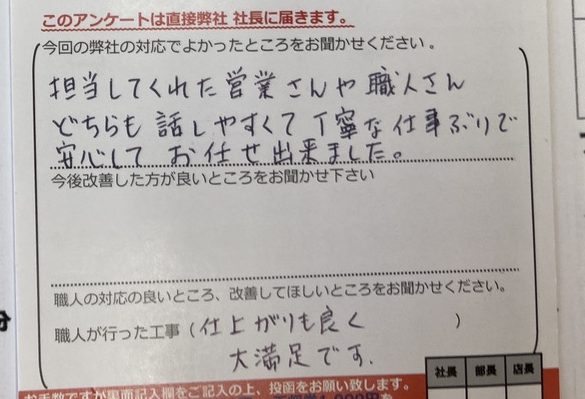 このアンケートは直接弊社 社長に届きます。
今回の弊社の対応でよかったところをお聞かせください。
担当してくれた営業さんや職人さん
どちらも話しやすくて丁寧な仕事ぶりで
安心してお任せ出来ました。
今後改善した方が良いところをお聞かせ下さい
職人の対応の良いところ、改善してほしいところをお聞かせください。
職人が行った工事（仕上がりも良く ）
大満足です.
社長 部長 店長
お手数ですが裏面記入欄をご記入の上、投函をお願い致します。